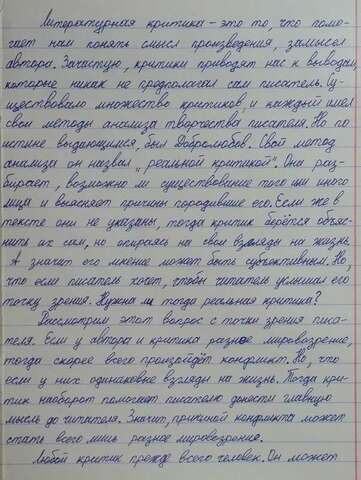 Литературная критика – это то, что помо-
гает нам понять смысл произведения, замысел
автора. Зачастую, критики приводят нас к выводам,
которые никак не предполагал сам писатель. Су-
ществовало множество критиков, и каждый имел
свои методы анализа творчества писателя. Но по
истине выдающимся, был Добролюбов. Свой метод
анализа он назвал „реальной критикой". Она раз-
бирает, возможно ли существование того или иного
лица и выясняет причины породившие его. Если же в
тексте они не указаны, тогда критик берётся объяс-
нить их сам, но опираясь на свои взгляды на жизнь.
А значит его мнение может быть субъективным. Но,
что если писатель хочет, чтобы читатель услышал его
точку зрения. Нужна ли тогда реальная критика?
Рассмотрим этот вопрос с точки зрения писа-
теля. Если у автора и критика разное мировоззрение,
тогда скорее всего произойдёт конфликт. Но, что
если у них одинаковые взгляды на жизнь. Тогда кри-
тик наоборот помогает писателю донести главную
мысль до читателя. Значит, причиной конфликта может
стать всего лишь разное мировоззрение.
Любой критик прежде всего человек. Он может